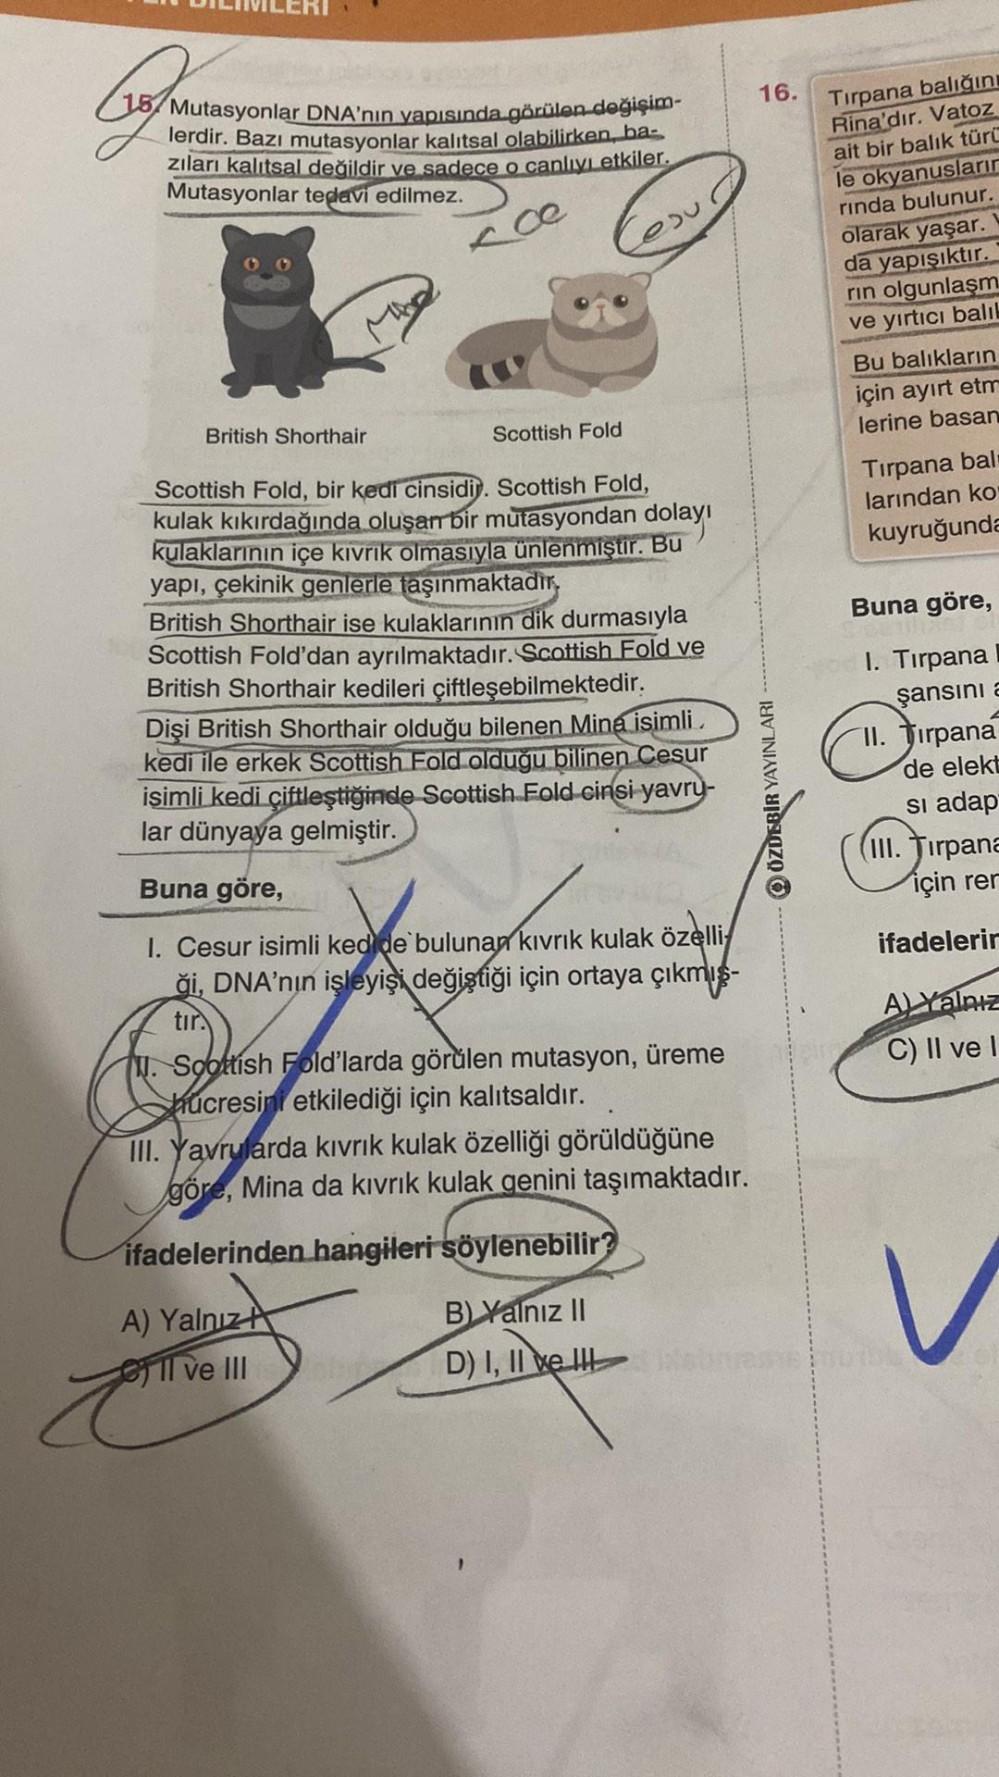 BİLİMLERİ
15. Mutasyonlar DNA'nın yapısında görülen değişim-
lerdir. Bazı mutasyonlar kalıtsal olabilirken, ba-
zıları kalıtsal değildir ve sadece o canlıyı etkiler.
Mutasyonlar tedavi edilmez.
Cesur
British Shorthair
Scottish Fold
Scottish Fold, bir kedi cinsidir. Scottish Fold,
kulak kıkırdağında oluşan bir mutasyondan dolayı
kulaklarının içe kıvrık olmasıyla ünlenmiştir. Bu
yapı, çekinik genlerle taşınmaktadır.
British Shorthair ise kulaklarının dik durmasıyla
Scottish Fold'dan ayrılmaktadır. Scottish Fold ve
British Shorthair kedileri çiftleşebilmektedir.
Dişi British Shorthair olduğu bilenen Mina isimli
kedi ile erkek Scottish Fold olduğu bilinen Cesur
isimli kedi çiftleştiğinde Scottish Fold cinsi yavru-
lar dünyaya gelmiştir.
Buna göre,
I. Cesur isimli kedide bulunan kıvrık kulak özelli-
ği, DNA'nın işleyişi değiştiği için ortaya çıkmış-
tır.
II. Scottish Fold'larda görülen mutasyon, üreme
hücresini etkilediği için kalıtsaldır.
III. Yavrularda kıvrık kulak özelliği görüldüğüne
göre, Mina da kıvrık kulak genini taşımaktadır.
ifadelerinden hangileri söylenebilir?
A) Yalnız I
B) Yalnız II
C) II ve III
D) I, II ve III
ÖZDEBİR YAYINLARI
16. Tırpana balığını
Rina'dır. Vatoz
ait bir balık türü
le okyanusların
rında bulunur.
olarak yaşar.
da yapışıktır.
rın olgunlaşm
ve yırtıcı balık
Bu balıkların
için ayırt etm
lerine basan
Tırpana balı
larından ko
kuyruğunda
Buna göre,
I. Tırpana
şansını a
II. Tırpana
de elekt
sı adap
III. Tırpana
için ren
ifadelerin
A) Yalnız
C) II ve I